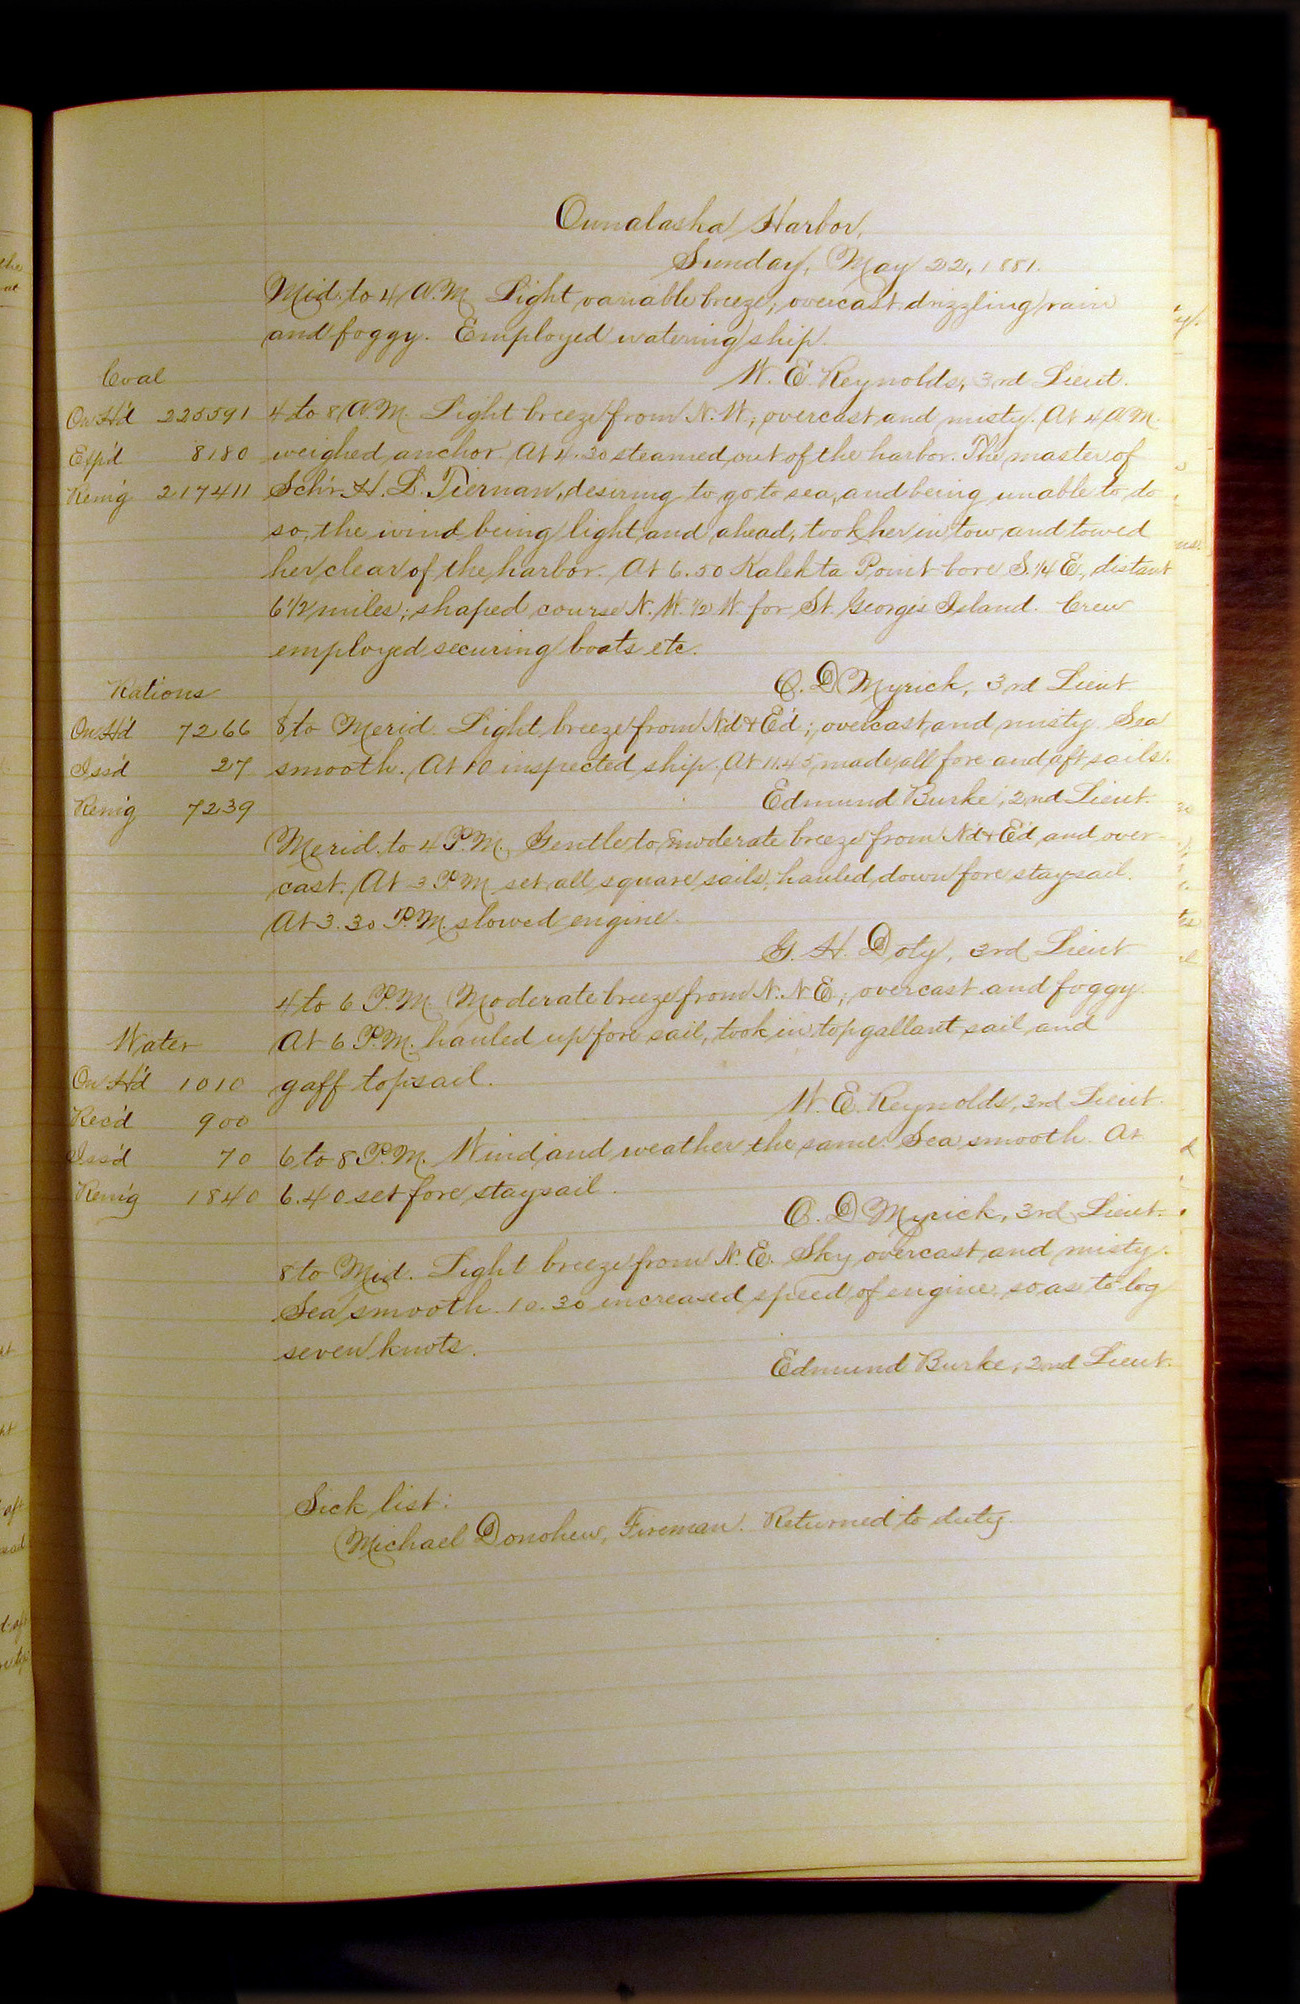 Ounalaska Harbor,
Sunday, May 22, 1881.
Mid. to 4 A.M. Light variable breeze; overcast drizzling rain
and foggy. Employed watering ship.
W. E. Reynolds, 3rd Lieut.
Coal
On H'd 225591
Exp'd 8180
Rem'g 217411
4 to 8 A.M. Light breeze from N.W.; overcast and misty. At 4 A.M.
weighed anchor. At 4.30 steamed out of the harbor. The master of
Schr. H. L. Tiernan, desiring to go to sea, and being unable to do
so, the wind being light and ahead, took her in tow and towed
her clear of the harbor. At 6.50 Kalekta Point bore S. 1/4 E., distant
6 1/2 miles; shaped course N. W. 1/2 W. for St. George's Island. Crew
employed securing boats etc.
O. D. Myrick, 3rd Lieut.
Rations
On H'd 7266
Iss'd 27
Rem'g 7239
8 to Merid. Light breeze from N'd & E'd; overcast and misty. Sea
smooth. At 10 inspected ship. At 11.45 made all fore and aft sails.
Edmund Burke, 2nd Lieut.
Merid. to 4 P.M. Gentle to moderate breeze from N'd & E'd and over-
cast. At 3 P.M. set all square sails, hauled down fore staysail.
At 3.30 P.M. slowed engine.
G. H. Doty, 3rd Lieut
4 to 6 P.M. Moderate breeze from N.N.E.; overcast and foggy.
At 6 P.M. hauled up fore sail, took in topgallant sail and
gaff topsail.
W. E. Reynolds, 3rd Lieut.
Water
On H'd 1010
Rec'd 900
Iss'd 70
Rem'g 1840
6 to 8 P.M. Wind and weather the same. Sea smooth. At
6.40 set fore staysail.
O. D. Myrick, 3rd Lieut.
8 to Mid. Light breeze from N.E. Sky overcast and misty.
Sea smooth. 10.30 increased speed of engine so as to log
seven knots.
Edmund Burke, 2nd Lieut.
Sick list:
Michael Donohew, Fireman. Returned to duty.